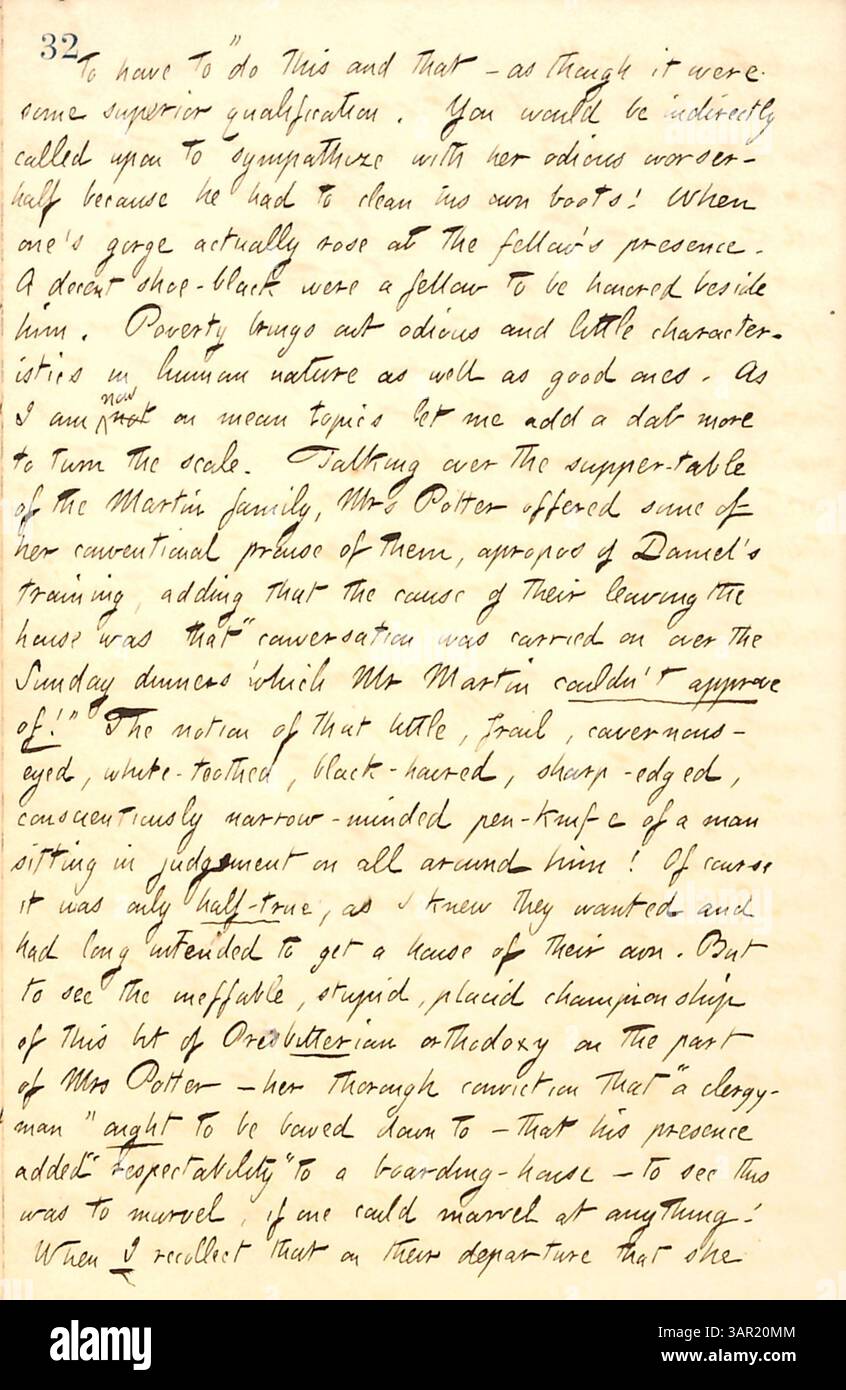 32
to have to "do this and that - as though it were
some superior qualification. You would be indirectly
called upon to sympathize with her odious worser-
half because he had to clean his own boots! When
one's gorge actually rose at the fellow's presence.
A decent shoe-black were a fellow to be honored beside
him. Poverty brings out odious and little character-
istics in human nature as well as good ones. As
now
I am not on mean topics let me add a dab more
to turn the scale. Talking over the supper-table
of the Martin family, Mrs Potter offered some of
her conventional praise of them, apropos of Daniel's
training, adding that the cause of their leaving the
house was that "conversation was carried on over the
Sunday dinners which Mr Martin couldn't approve
of!" The notion of that little, frail, cavernous-
eyed, white-toothed, black-haired, sharp-edged,
conscientiously narrow-minded pen-knife of a man
sitting in judgement on all around him! Of course
it was only half-true, as I knew they wanted and
had long intended to get a house of their own. But
to see the ineffable, stupid, placid championship
of this bit of Presbitterian orthodoxy on the part
of Mrs Potter - her thorough conviction that "a clergy-
man" ought to be bowed down to - that his presence
added "respectability" to a boarding-house - to see this
was to marvel, if one could marvel at anything!
When I recollect that on their departure that she
alamy
Image ID: 3AR20MM
www.alamy.com